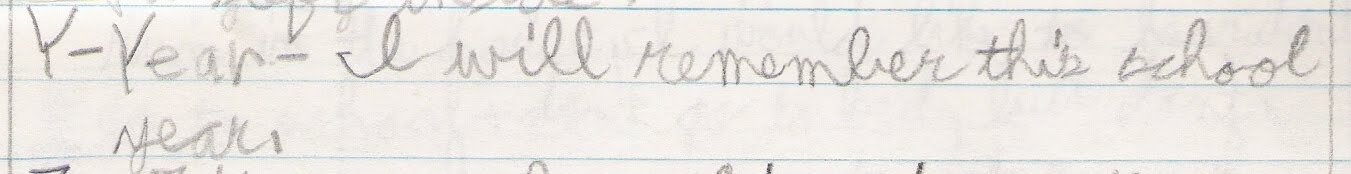 Y-Year- I will remember this school
year.